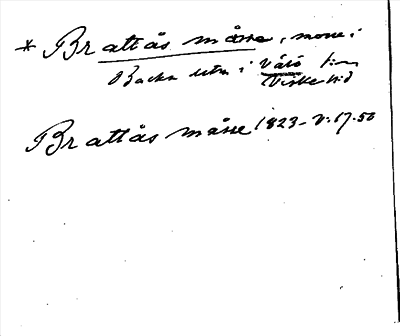 * Brattås måsse, mosse i
Backa utm i Värö sn
Viske hd
Brattås måsse 1823 - V. 17. 50